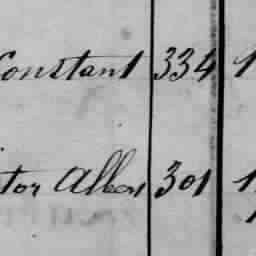 Constant 334 1
tor Albert 301 1